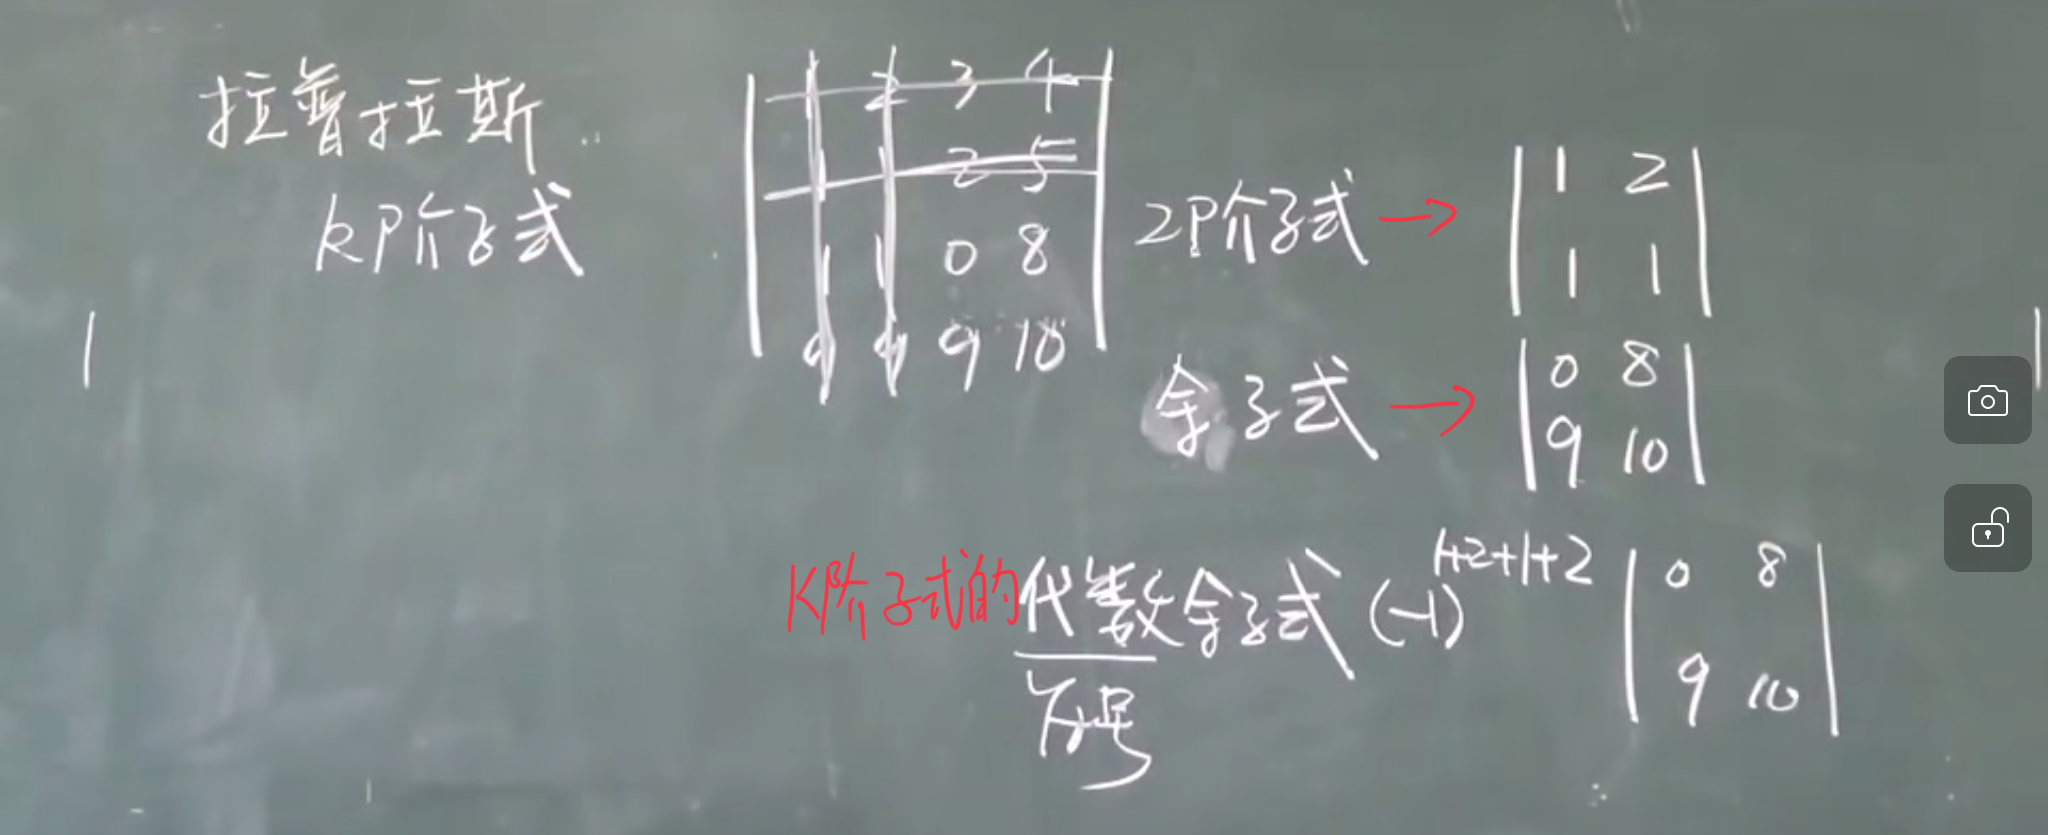 拉普拉斯
k阶子式
1 2 3 4
1 1 2 5
1 1 0 8
9 9 9 10
2阶子式 →
1 2
1 1
余子式 →
0 8
9 10
K阶子式的代数余子式 (-1)^{1+2+1+2}
0 8
9 10
符号